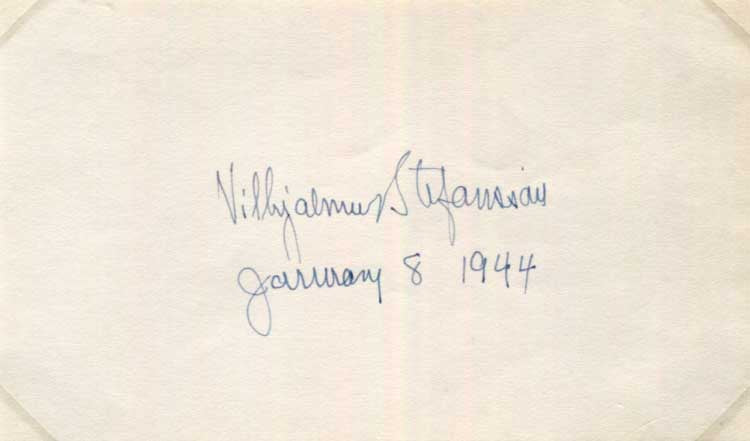 Vilhjalmur Stefansson
January 8 1944